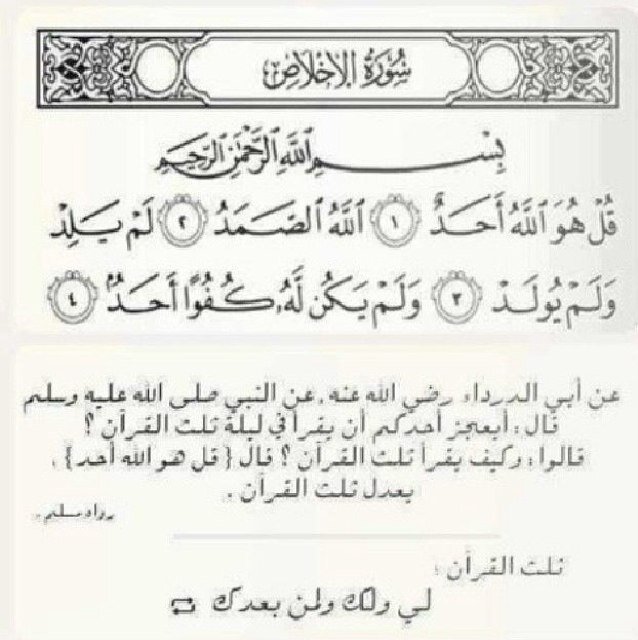 سُورَةُ الإِخْلَاصِ
بِسْمِ اللَّهِ الرَّحْمَٰنِ الرَّحِيمِ
قُلْ هُوَ اللَّهُ أَحَدٌ ١ اللَّهُ الصَّمَدُ ٢ لَمْ يَلِدْ
وَلَمْ يُولَدْ ٣ وَلَمْ يَكُن لَّهُ كُفُوًا أَحَدٌ ٤
عن أبي الدرداء رضي الله عنه، عن النبي صلى الله عليه وسلم
قال: أيعجز أحدكم أن يقرأ في ليلة ثلث القرآن ؟
قالوا: وكيف يقرأ ثلث القرآن ؟ قال {قل هو الله أحد}،
يعدل ثلث القرآن .
رواه مسلم.
ثلث القرآن :
لي ولك ولمن بعدك